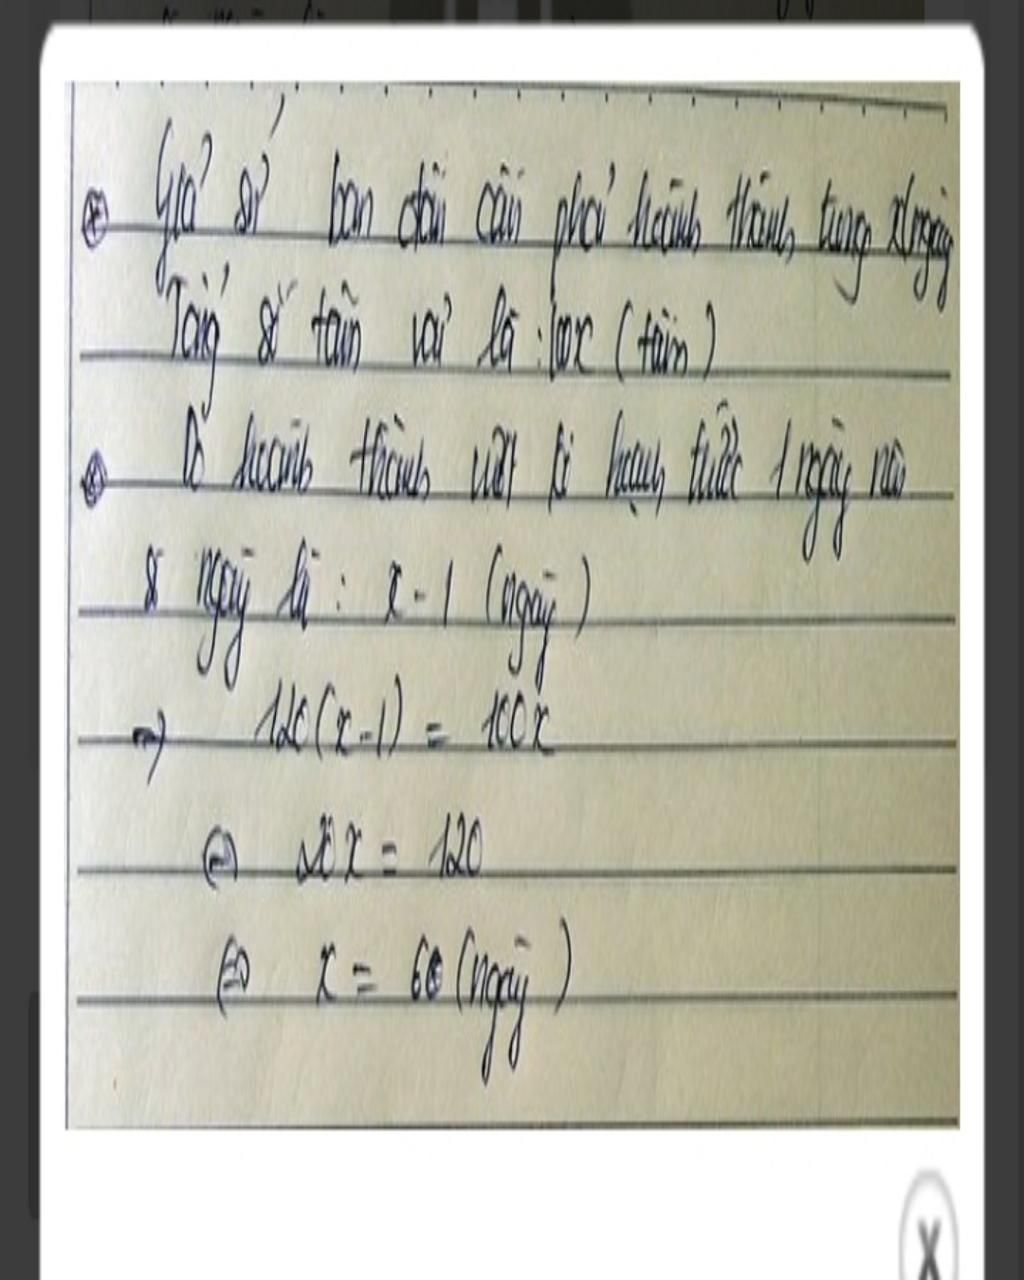 Giả sử ban đầu cần phải hoành thành trong x ngày
Tổng số tấm vải là : 100x (tấm)
Do hoành thành vượt kế hoạch trước 1 ngày nên
số ngày là : x - 1 (ngày)
→ 120(x-1) = 100x
⇔ 20x = 120
⇔ x = 6 (ngày)
X